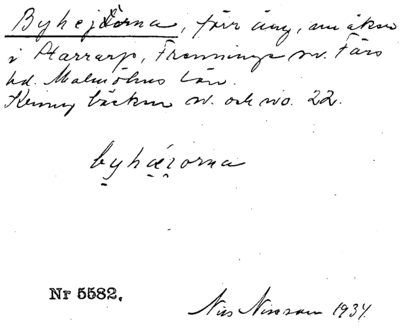 Byhejdorna, förr äng, nu åkrar
i Starrarp, Fränninge sn. Färs
hd. Malmöhus län.
Kring bäcken n. och no. 22.
byhäjorna
Nr 5582.
Nils Nilsson 1934.